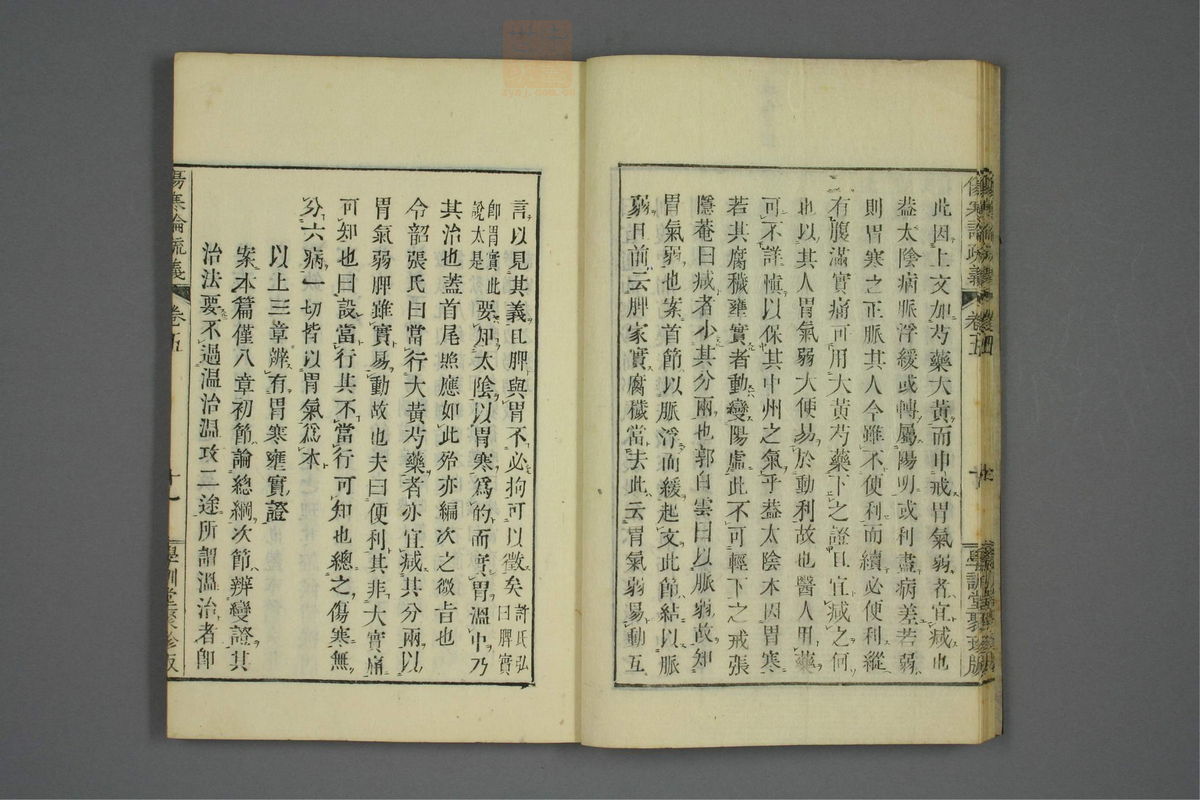 此因上文加芍藥大黃而申戒胃氣弱者宜減也
蓋太陰病脈浮緩或轉屬陽明或利盡病差若弱
則胃寒之正脈其人今雖不便利而續必便利縱
有腹滿實痛可用大黃芍藥下之證且宜減之何
也以其人胃氣弱大便易於動利故也醫人用藥
可不詳愼以保其中州之氣乎蓋太陰本因胃寒
若其腐穢壅實者動變陽處此不可輕下之戒張
隱菴曰減者少其分兩也郭白雲曰以脈弱故知
胃氣弱也案首節以脈浮而緩起文此節結以脈
弱且前云脾家實腐穢當去此云胃氣弱易動互
傷寒論疏義
卷五
學訓堂聚珍版
言以見其義且脾與胃不必拘可以徵矣許氏弘曰脾實
卽胃實此說太是要知太陰以胃寒爲的而實胃溫中乃
其治也蓋首尾照應如此殆亦編次之微旨也
令韶張氏曰當行大黃芍藥者亦宜減其分兩以
胃氣弱脾雖實易動故也夫曰便利其非大實痛
可知也曰設當行其不當行可知也總之傷寒無
分六病一切皆以胃氣爲本
以上三章辨有胃寒壅實證
案本篇僅八章初節論總綱次節辨變證其
治法要不過溫治溫攻二途所謂溫治者卽
傷寒論疏義
卷五
十一
學訓堂聚珍版